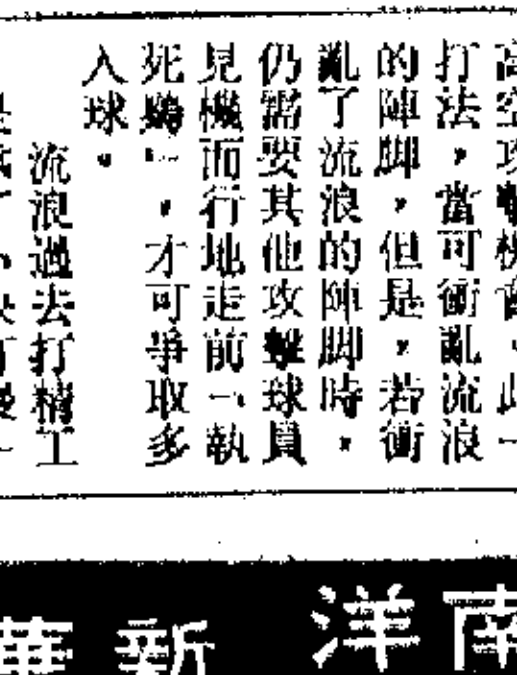 高空攻擊機會，此一
打法，當可衝亂流浪
的陣脚，但是，若衝
亂了流浪的陣脚時，
仍需要其他攻擊球員
見機而行地走前「執
死鷄」，才可爭取多
入球。
流浪過去打精工
南洋 新華